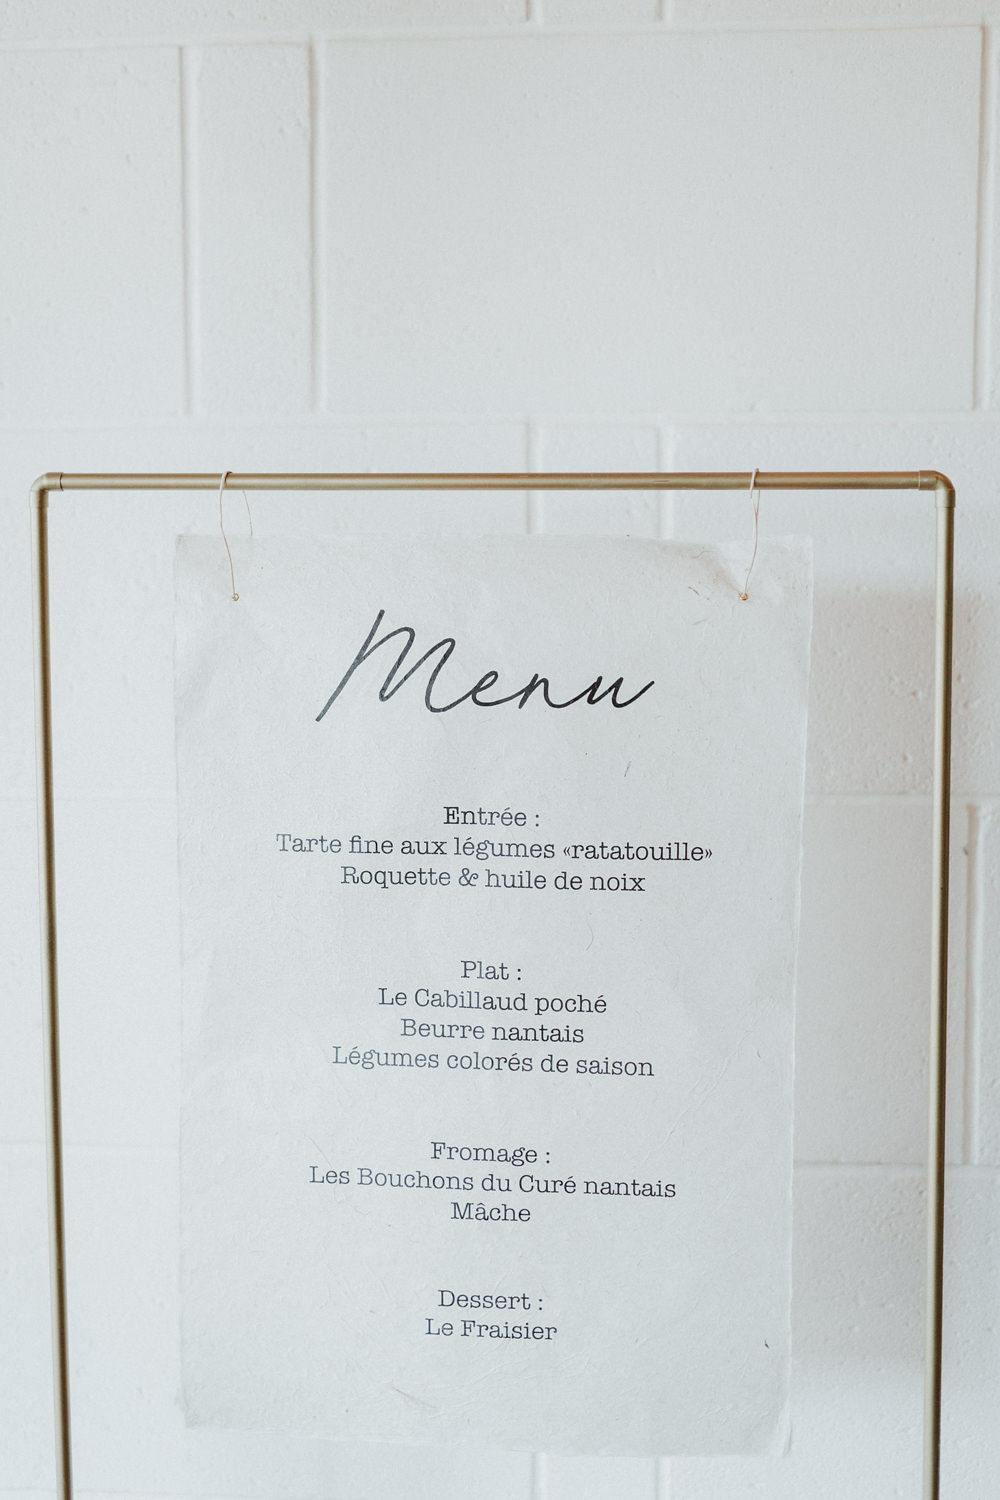 Menu
Entrée :
Tarte fine aux légumes «ratatouille»
Roquette & huile de noix
Plat :
Le Cabillaud poché
Beurre nantais
Légumes colorés de saison
Fromage :
Les Bouchons du Curé nantais
Mâche
Dessert :
Le Fraisier